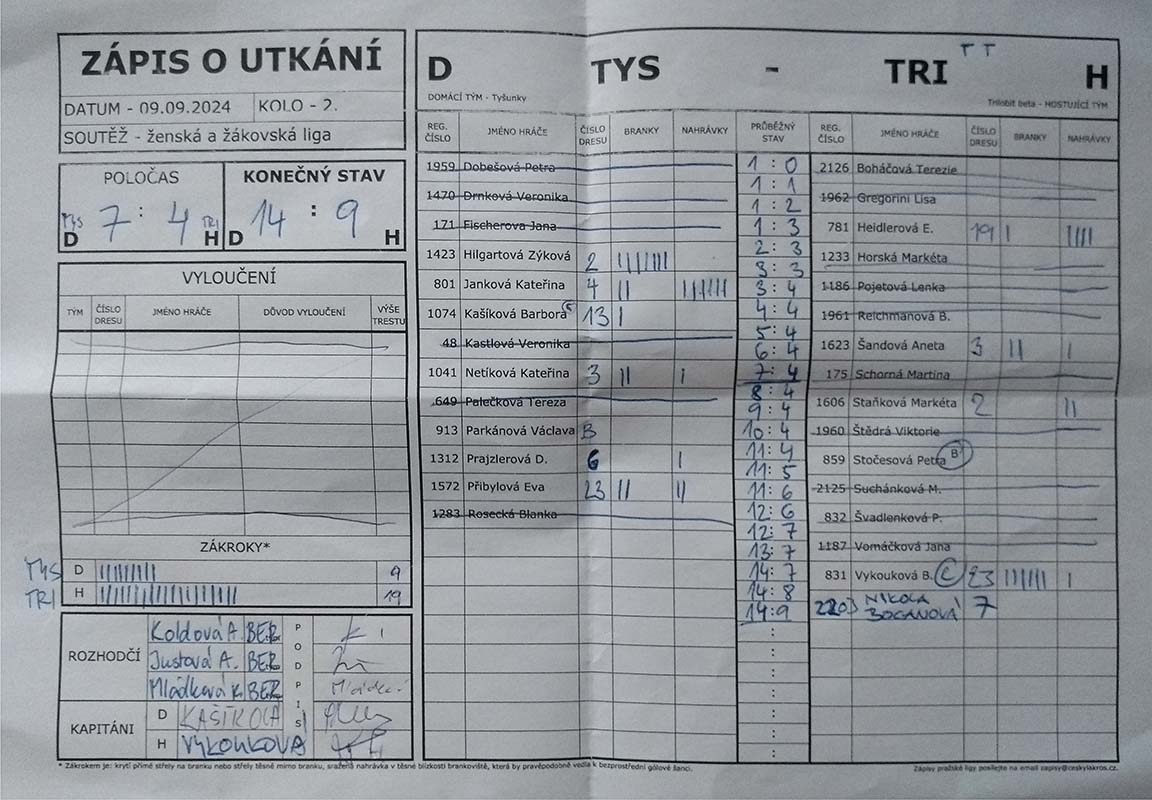 ZÁPIS O UTKÁNÍ
DATUM - 09.09.2024 KOLO - 2.
SOUTĚŽ - ženská a žákovská liga
POLOČAS KONEČNÝ STAV
TYS 7 : 4 TRI 14 : 9
D H D H
VYLOUČENÍ
TÝM ČÍSLO DRESU JMÉNO HRÁČE DŮVOD VYLOUČENÍ VÝŠE TRESTU
ZÁKROKY*
TYS D 9
TRI H 19
ROZHODČÍ PODPIS
Koldová A. BER
Justová A. BER
Mládková K. BER
KAPITÁNI
D KAŠÍKOVÁ
H VYKOUKOVÁ
D TYS - TRI T T H
DOMÁCÍ TÝM - Tyšunky Trilobit beta - HOSTUJÍCÍ TÝM
REG. ČÍSLO JMÉNO HRÁČE ČÍSLO DRESU BRANKY NAHRÁVKY
1959 Dobešová Petra
1470 Drnková Veronika
171 Fischerova Jana
1423 Hilgartová Zýková 2 |||||||
801 Janková Kateřina 4 ||
1074 Kašíková Barbora C 13 |
48 Kastlová Veronika
1041 Netíková Kateřina 3 || |
649 Palečková Tereza
913 Parkánová Václava B
1312 Prajzlerová D. 6 |
1572 Přibylová Eva 23 || ||
1283 Rosecká Blanka
PRŮBĚŽNÝ STAV
1 : 0
1 : 1
1 : 2
1 : 3
2 : 3
3 : 3
3 : 4
4 : 4
5 : 4
6 : 4
7 : 4
8 : 4
9 : 4
10 : 4
11 : 4
11 : 5
11 : 6
12 : 6
12 : 7
13 : 7
14 : 7
14 : 8
14 : 9
:
:
:
:
:
:
:
REG. ČÍSLO JMÉNO HRÁČE ČÍSLO DRESU BRANKY NAHRÁVKY
2126 Boháčová Terezie
1962 Gregorini Lisa
781 Heidlerová E. 19 | ||||
1233 Horská Markéta
1186 Pojetová Lenka
1961 Reichmanová B.
1623 Šandová Aneta 3 || |
175 Schorná Martina
1606 Staňková Markéta 2 ||
1960 Štědrá Viktorie
859 Stočesová Petra B
2125 Suchánková M.
832 Švadlenková P.
1187 Vomáčková Jana
831 Vykouková B. C 23 |
NIKOLA
BOGANOVÁ 7
* Zákrokem je: krytí přímé střely na branku nebo střely těsně mimo branku, sražená nahrávka v těsné blízkosti brankoviště, která by pravěpodobně vedla k bezprostřední gólové šanci.
Zápisy pražské ligy posílejte na email zapisy@ceskylakros.cz.